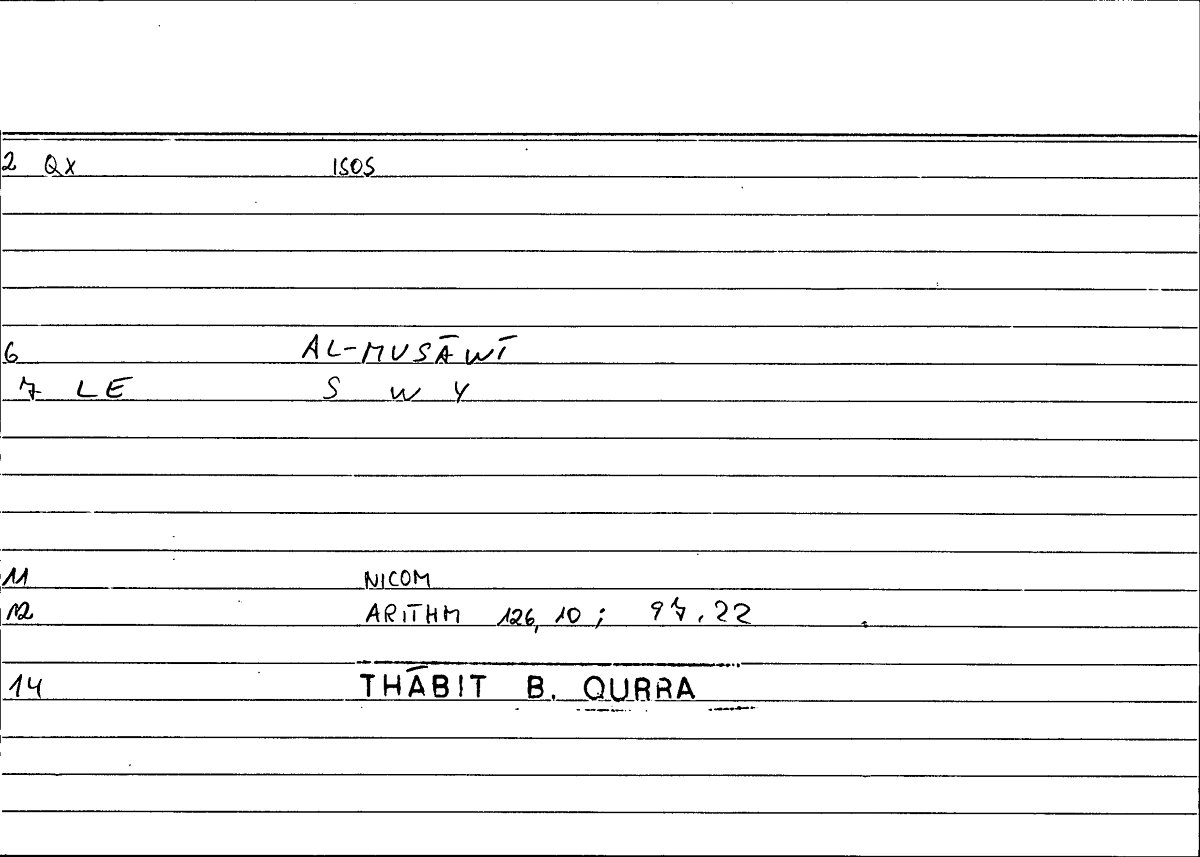 2 QX ISOS
6 AL-MUSĀWĪ
7 LE S W Y
11 NICOM
12 ARITHM 126,10; 97.22
14 THĀBIT B. QURRA